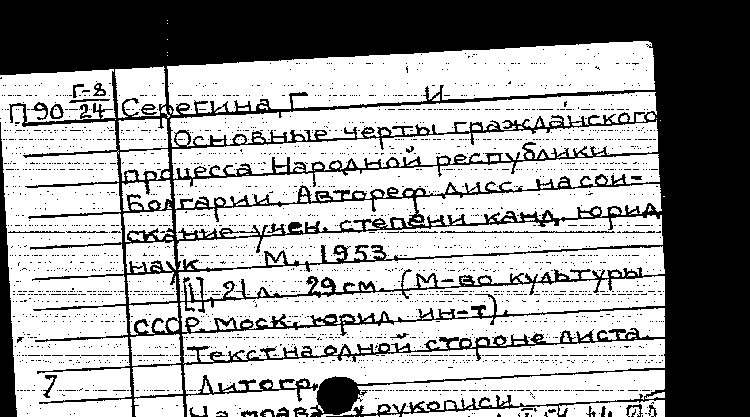 П90 Г-8/24 Серегина, Г И
Основные черты гражданского
процесса Народной республики
Болгарии. Автореф. дисс. на сои-
скание учен. степени канд. юрид.
наук. М., 1953.
[1], 21 л. 29 см. (М-во культуры
СССР. Моск. юрид. ин-т).
Текст на одной стороне листа.
7 Литогр.
На правах рукописи.